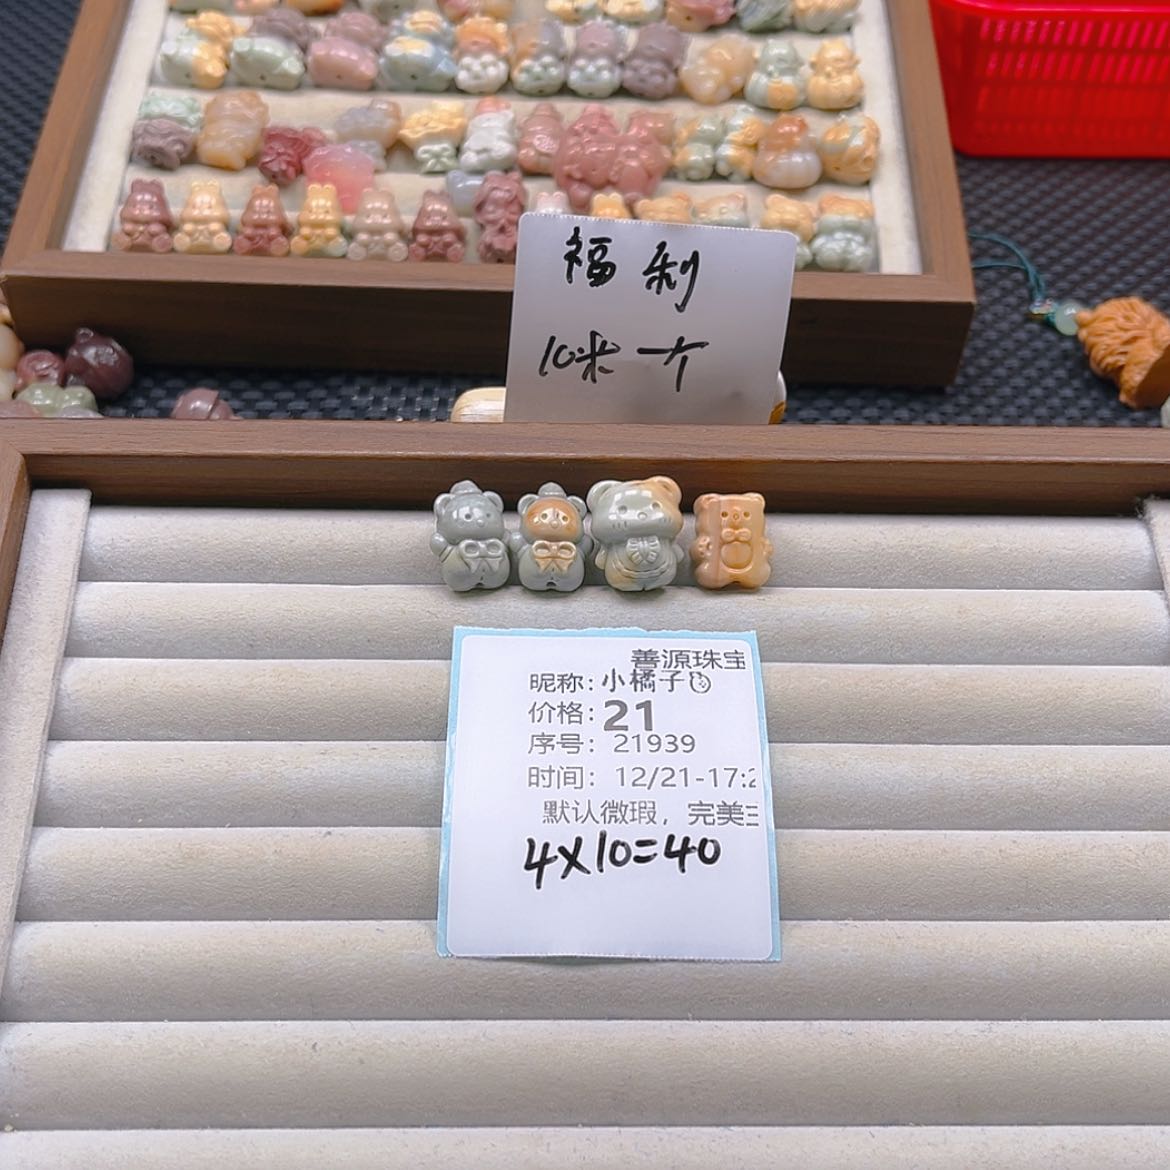 福利
10米一个
善源珠宝
昵称:小橘子
价格:21
序号: 21939
时间: 12/21-17:2
默认微瑕，完美
4×10=40